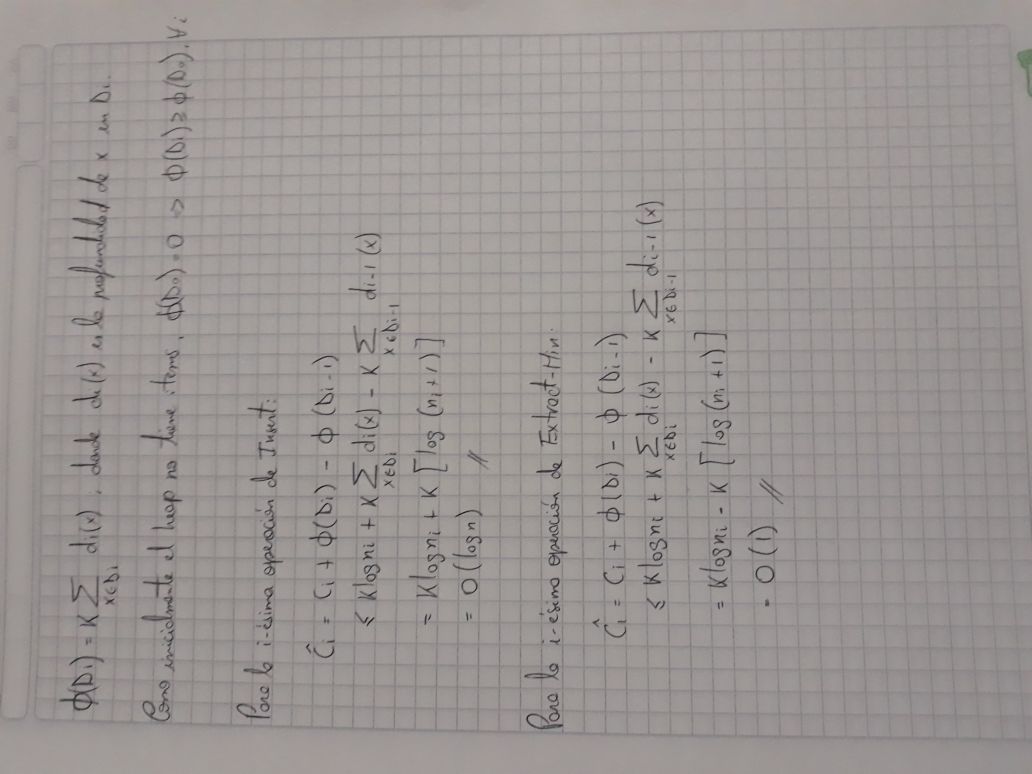 ϕ(Di) = K∑x∈Di di(x); donde di(x) es la profundidad de x en Di.
Como inicialmente el heap no tiene items, ϕ(D₀)=0 => ϕ(Di) ≥ ϕ(D₀), ∀i
Para la i-ésima operación de Insert:
Ĉi = Ci + ϕ(Di) - ϕ(Di-1)
≤ K log ni + K∑x∈Di di(x) - K∑x∈Di-1 di-1(x)
= K log ni + K⌈log (ni+1)⌉
= O(log n) //
Para la i-ésima operación de Extract-Min:
Ĉi = Ci + ϕ(Di) - ϕ(Di-1)
≤ K log ni + K∑x∈Di di(x) - K∑x∈Di-1 di-1(x)
= K log ni - K⌈log (ni+1)⌉
= O(1) //